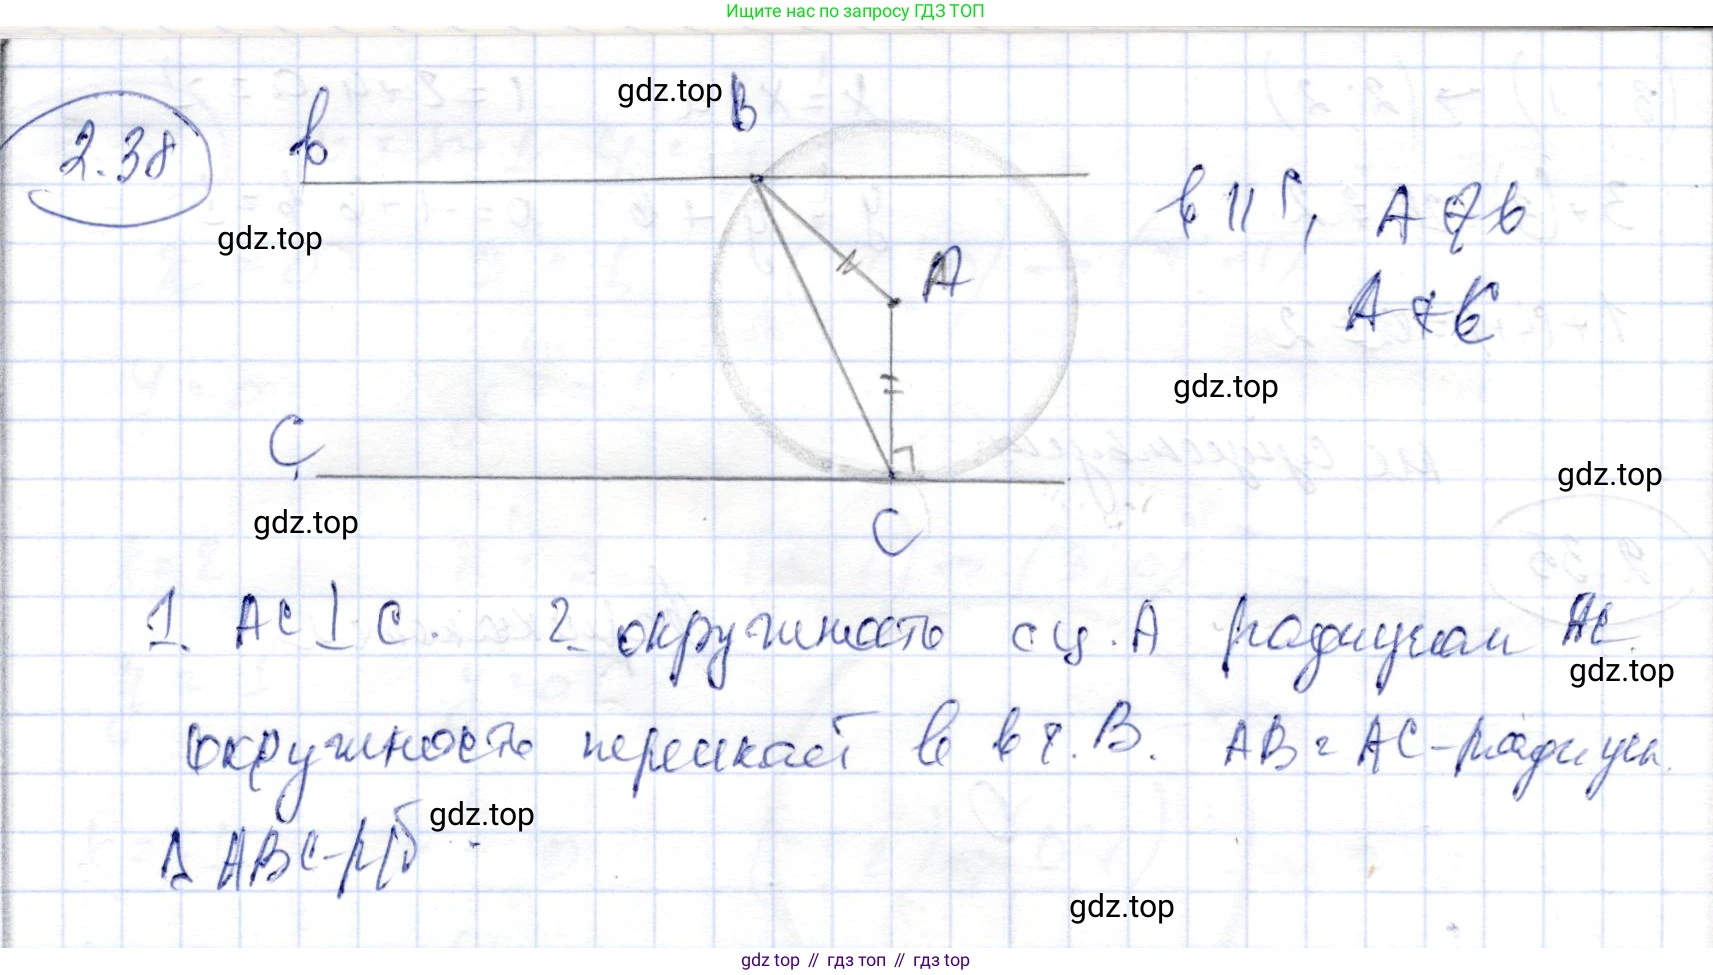 Ищите нас по запросу ГДЗ ТОП
gdz.top
B
2.38
b
b ∥ c, A ∉ b
gdz.top
A
A ∉ c
gdz.top
C
gdz.top
gdz.top
C
1. AC ⊥ c. 2. окружность с ц. A радиусом AC.
gdz.top
окружность пересекает b в т. B. AB = AC - радиусы.
gdz.top
Δ ABC - р/б
gdz.top
gdz top // гдз топ // гдз top